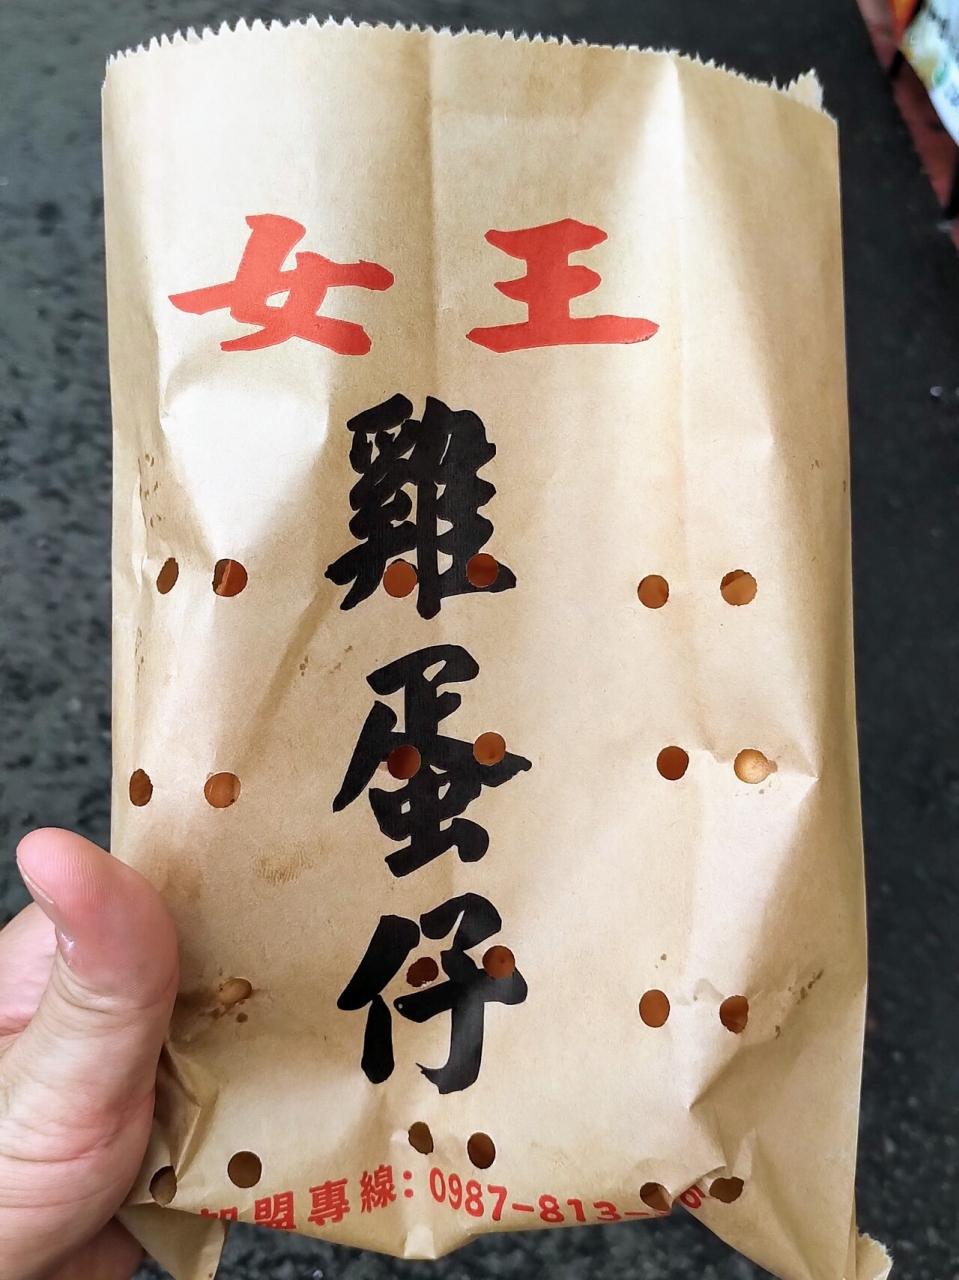 女王
雞蛋仔
加盟專線：0987-813-